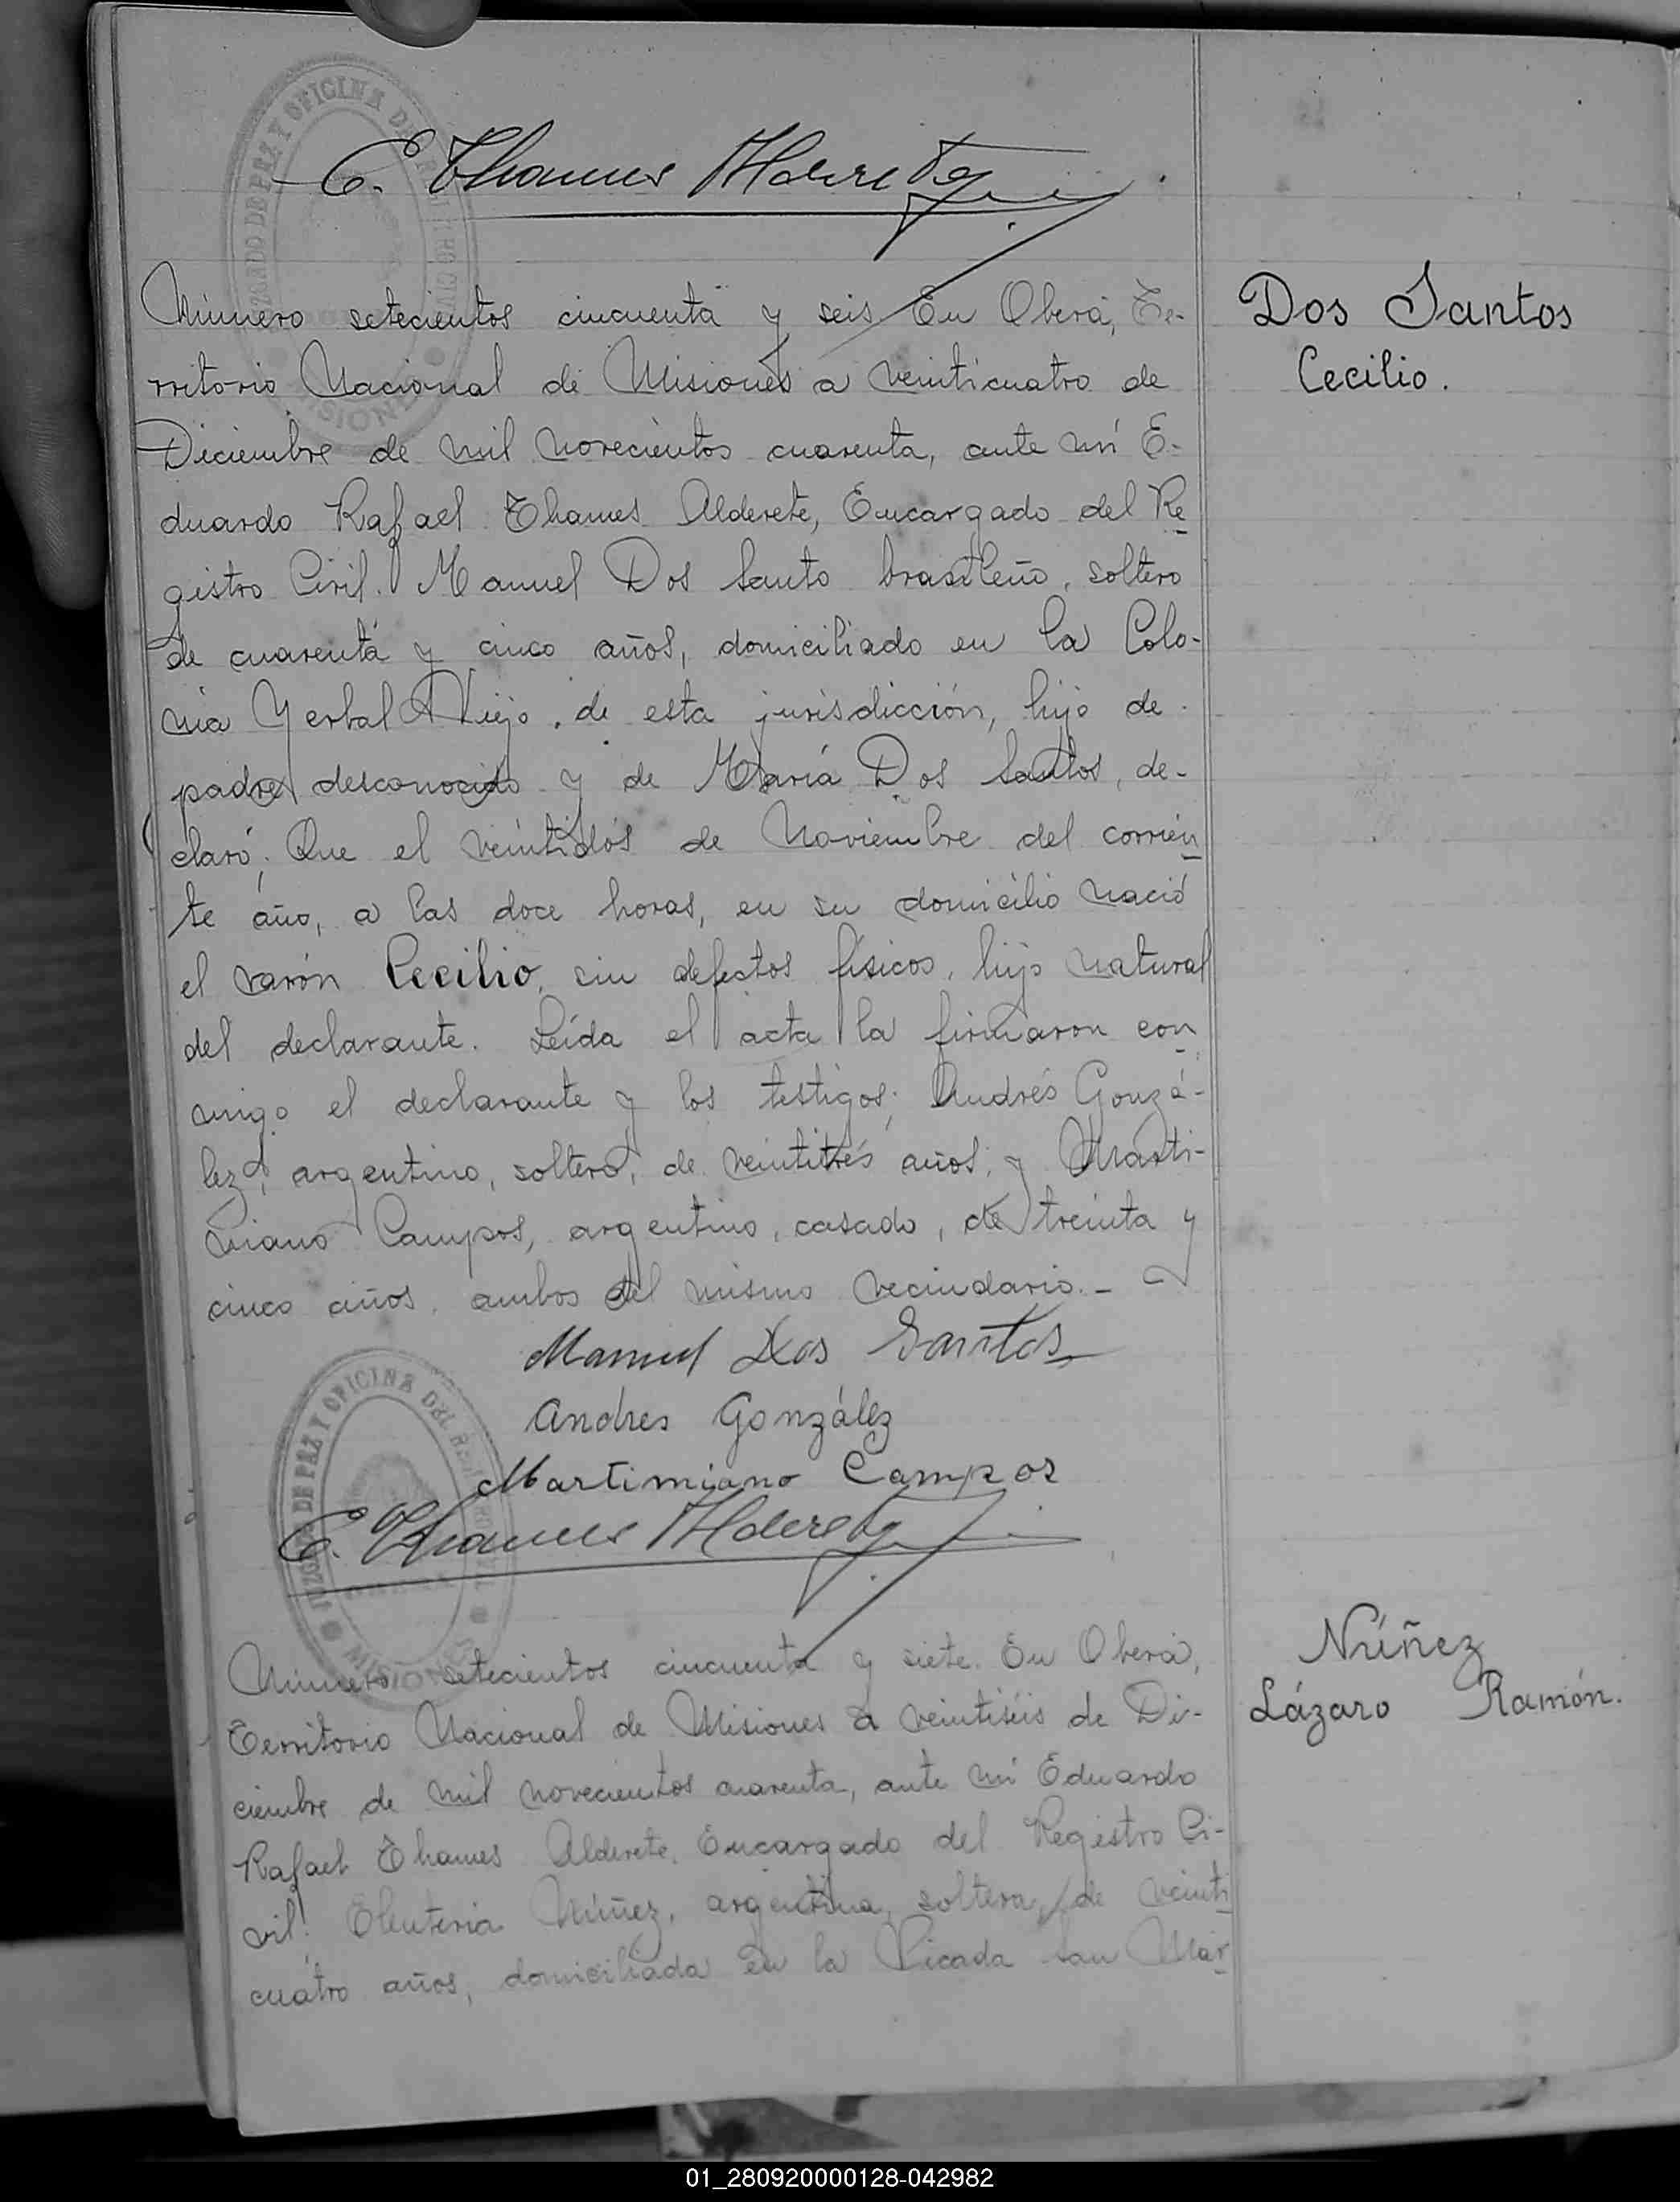 E. Thames Alderete
Número setecientos cincuenta y seis En Oberá, Te-
rritorio Nacional de Misiones a veinticuatro de
Diciembre de mil novecientos cuarenta, ante mí E-
duardo Rafael Thames Alderete, Encargado del Re
gistro Civil. Manuel Dos Santo brasileño, soltero
de cuarenta y cinco años, domiciliado en la Colo-
nia Yerbal Viejo, de esta jurisdicción, hijo de
padre desconocido y de María Dos Santos, de-
claró; Que el veintidós de Noviembre del corrien
te año, a las doce horas, en su domicilio nació
el varón Cecilio, sin defectos físicos, hijo natural
del declarante. Leída el acta la firmaron con
migo el declarante y los testigos; Andrés Gonzá-
lez, argentino, soltero, de veintitrés años; y Marti-
niano Campos, argentino, casado, de treinta y
cinco años, ambos del mismo vecindario.-
Manuel Dos Santos
Andres González
Martimiano Campos
E. Thames Alderete
Número setecientos cincuenta y siete. En Oberá,
Territorio Nacional de Misiones a veintiséis de Di-
ciembre de mil novecientos cuarenta, ante mí Eduardo
Rafael Thames Alderete, Encargado del Registro Ci-
vil! Eleuteria Núñez, argentina, soltera, de veinti
cuatro años, domiciliada en la Picada San Mar
Dos Santos
Cecilio.
Núñez
Lázaro Ramón.
JUZGADO DE PAZ Y OFICINA DEL REGISTRO CIVIL
MISIONES
JUZGADO DE PAZ Y OFICINA DEL
MISIONES
01_280920000128-042982